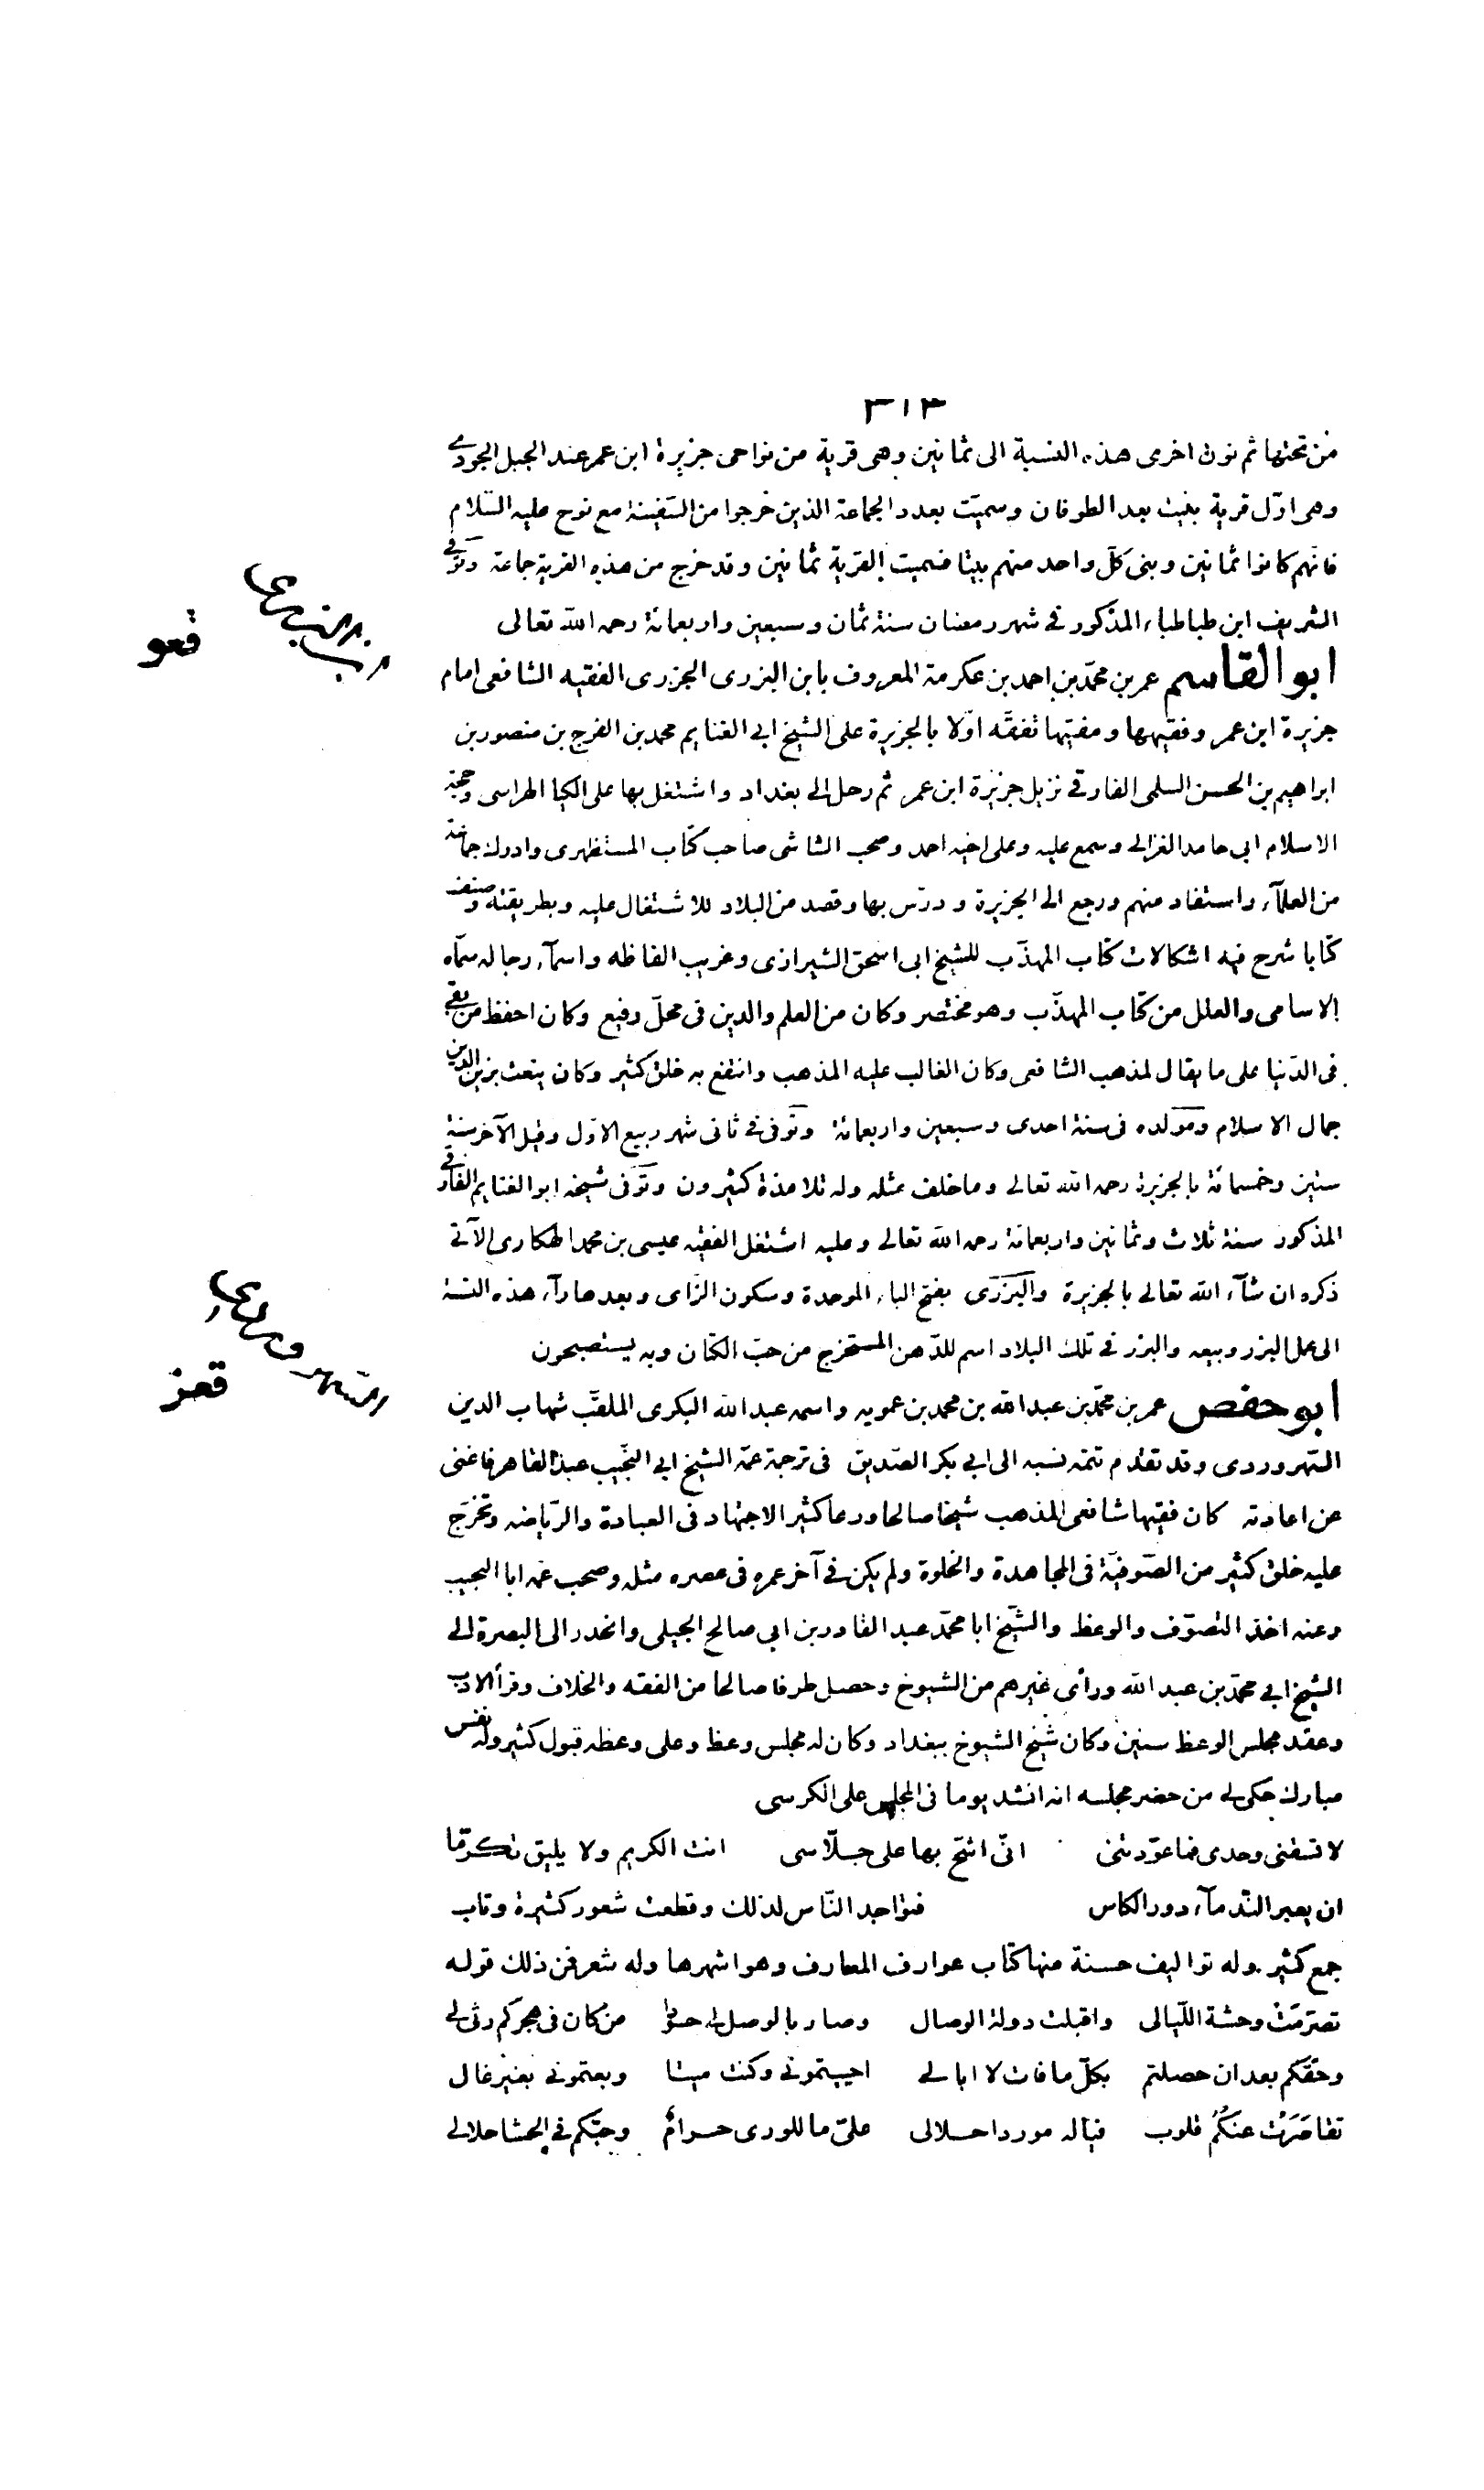 ٣١٣
من تحتها ثم نون اخرى هذه النسبة الى ثمانين وهى قرية من نواحى جزيرة ابن عمر عند الجبل الجودى
وهى اوّل قرية بنيت بعد الطوفان وسميّت بعدد الجماعة الذين خرجوا من السّفينة مع نوح عليه السّلام
فانّهم كانوا ثمانين وبنى كلّ واحد منهم بيتا فسميت القرية ثمانين وقد خرج من هذه القرية جماعة وتوّفى
الشريف ابن طباطباء المذكور فى شهر رمضان سنة ثمان وسبعين واربعمائة رحمه الله تعالى
ابو القاسم عمر بن محمّد بن احمد بن عكرمة المعروف بابن البزرى الجزرى الفقيه الشافعى امام
ابن البزرى
قعو
جزيرة ابن عمر وفقيهها ومفتيها تفقّه اوّلا بالجزيرة على الشيخ ابى الغنايم محمد بن الفرج بن منصور بن
ابراهيم بن الحسن السلمى الفارقى نزيل جزيرة ابن عمر ثم رحل الى بغداد واشتغل بها على الكيا الهراسى وحجة
الاسلام ابى حامد الغزالى وسمع عليه وعلى اخيه احمد وصحب الشاشى صاحب كتاب المستظهرى وادرك جماعة
من العلمآء واستفاد منهم ورجع الى الجزيرة ودرّس بها وقصد من البلاد للاشتغال عليه وبطريقته وصنف
كتابا شرح فيه اشكالات كتاب المهذّب للشيخ ابى اسحق الشيرازى وغريب الفاظه واسمآء رجاله سمّاه
الاسامى والعلل من كتاب المهذّب وهو مختصر وكان من العلم والدين فى محلّ رفيع وكان احفظ من بقى
فى الدّنيا على ما يقال لمذهب الشافعى وكان الغالب عليه المذهب وانتفع به خلق كثير وكان ينعت بزين الدين
جمال الاسلام ومولده فى سنة احدى وسبعين واربعمائة وتوفى فى ثانى شهر ربيع الاوّل وقيل الآخر سنة
ستين وخمسمائة بالجزيرة رحمه الله تعالى وما خلف مثله وله تلامذة كثيرون وتوّفى شيخه ابو الغنايم الفارقى
المذكور سنة ثلاث وثمانين واربعمائة رحمه الله تعالى وعليه اشتغل الفقيه عيسى بن محمد الهكارى الآتى
ذكره ان شآء الله تعالى بالجزيرة والبزرى بفتح الباء الموحدة وسكون الزاى وبعدها رآء هذه النسبة
الى عمل البزر وبيعه والبزر فى تلك البلاد اسم للدّهن المستخرج من حبّ الكتّان وبه يستصبحون
ابو حفص عمر بن محمّد بن عبد الله بن محمد بن عمويه واسمه عبد الله البكرى الملقّب شهاب الدين
السّهروردى
قعز
السّهروردى وقد تقدّم تتمّة نسبه الى ابى بكر الصّديق فى ترجمة عمّه الشيخ ابى النّجيب عبد القاهر فاغنى
عن اعادته كان فقيها شافعى المذهب شيخا صالحا ورعا كثير الاجتهاد فى العبادة والرّياضه وتخرّج
عليه خلق كثير من الصّوفيّة فى المجاهدة والخلوة ولم يكن فى آخر عمره فى عصره مثله وصحب عمه ابا النجيب
وعنه اخذ التصوّف والوعظ والشّيخ ابا محمّد عبد القادر بن ابى صالح الجيلى وانحدر الى البصرة الى
الشيخ ابى محمّد بن عبد الله ورأى غيرهم من الشيوخ وحصل طرفا صالحا من الفقه والخلاف وقرأ الادب
وعقد مجلس الوعظ سنين وكان شيخ الشيوخ ببغداد وكان له مجلس وعظ وعلى وعظه قبول كثير وله نفس
مبارك حكى لى من حضر مجلسه انه انشد يوما فى المجلس على الكرسى
لا تسقنى وحدى فما عوّدتنى انّى اشحّ بها على جلّاسى انت الكريم ولا يليق تكرّما
ان يعبر النّدمآء دور الكاس فتواجد النّاس لذلك وقطعت شعور كثيرة وتاب
جمع كثير وله تواليف حسنة منها كتاب عوارف المعارف وهو اشهرها وله شعر فمن ذلك قوله
تصرّمت وحشة اللّيالى واقبلت دولة الوصال وصار بالوصل لى حسودا من كان فى هجركم رثى لى
وحقّكم بعد ان حصلتم بكلّ ما فات لا ابالى احييتمونى وكنت ميتا وبعتمونى بغير غال
تقاصَرَتْ عنكُمُ قلوب فياله موردا حلالى علىّ ما للورى حرامٌ وحبّكم فى الحشا حلالى